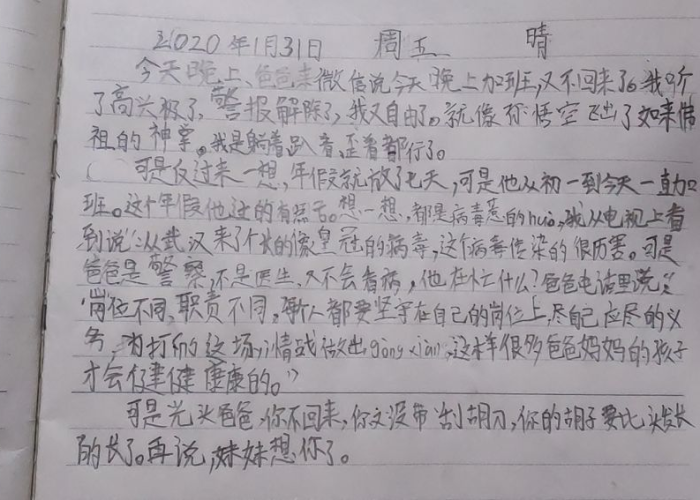 2020年1月31日 周五 晴
今天晚上、爸爸来微信说今天晚上加班,又不回来了。我听
了高兴极了,警报解除了,我又自由了。就像孙悟空飞出了如来佛
祖的神掌。我是躺着趴着、歪着都行了。
可是反过来一想,年假就放了七天,可是他从初一到今天一直加
班。这个年假他过的有点苦。想一想,都是病毒惹的huò,我从电视上看
到说:从武汉来了个长的像皇冠的病毒,这个病毒传染的很厉害。可是
爸爸是警察,不是医生,又不会看病,他在忙什么?爸爸电话里说:“
岗位不同,职责不同,每个人都要坚守在自己的岗位上,尽自己应尽的义
务,为打好这场疫情战做出gòng xiàn,这样很多爸爸妈妈的孩子
才会健健康康的。”
可是光头爸爸,你不回来,你又没带刮胡刀,你的胡子要比头发长
的长了。再说,妹妹想你了。